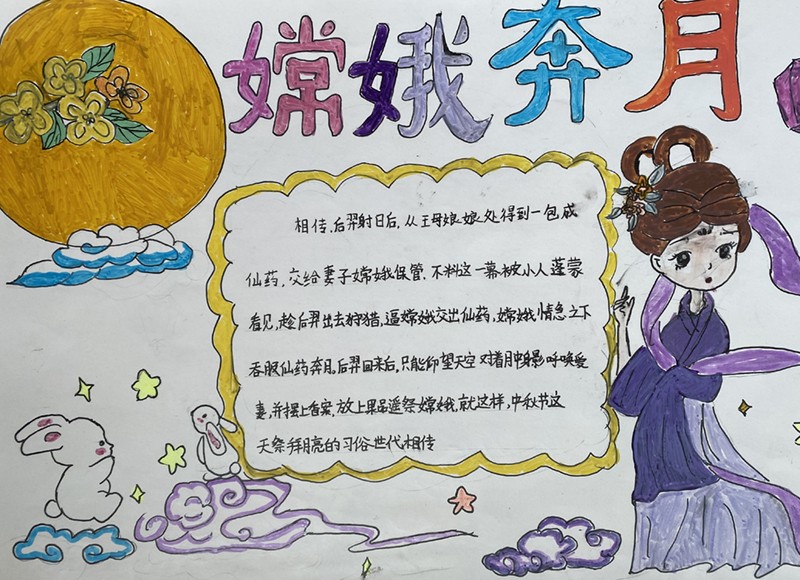 嫦娥奔月
相传,后羿射日后,从王母娘娘处得到一包成
仙药,交给妻子嫦娥保管.不料这一幕被小人蓬蒙
看见,趁后羿出去狩猎,逼嫦娥交出仙药,嫦娥情急之下
吞服仙药奔月。后羿回来后,只能仰望天空对着月中身影呼唤爱
妻,并摆上香案,放上果品遥祭嫦娥,就这样,中秋节这
天祭拜月亮的习俗世代相传